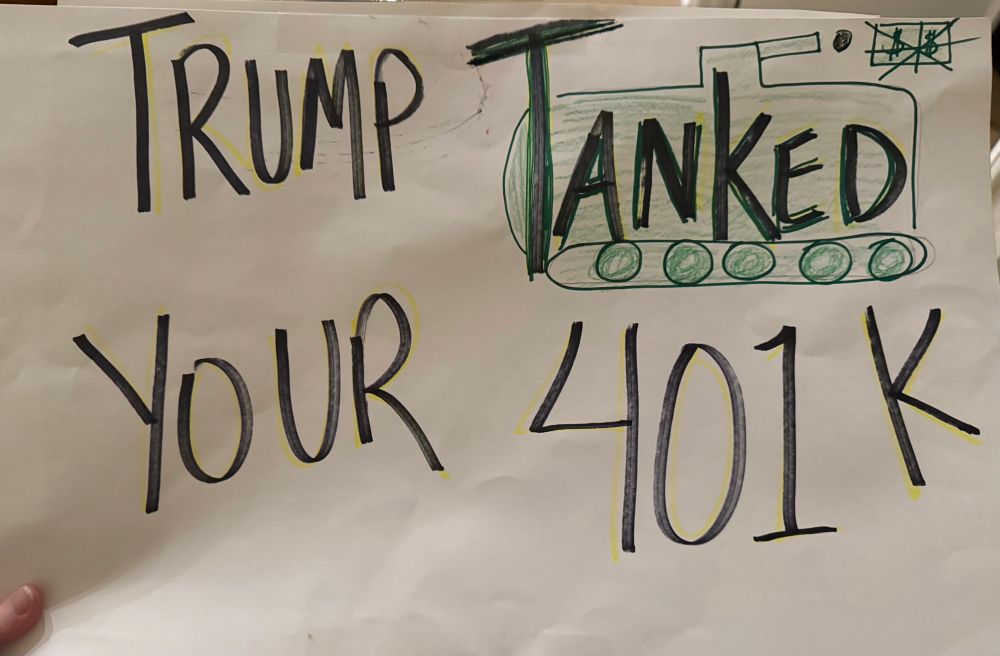 TRUMP TANKED
$ $
YOUR 401K